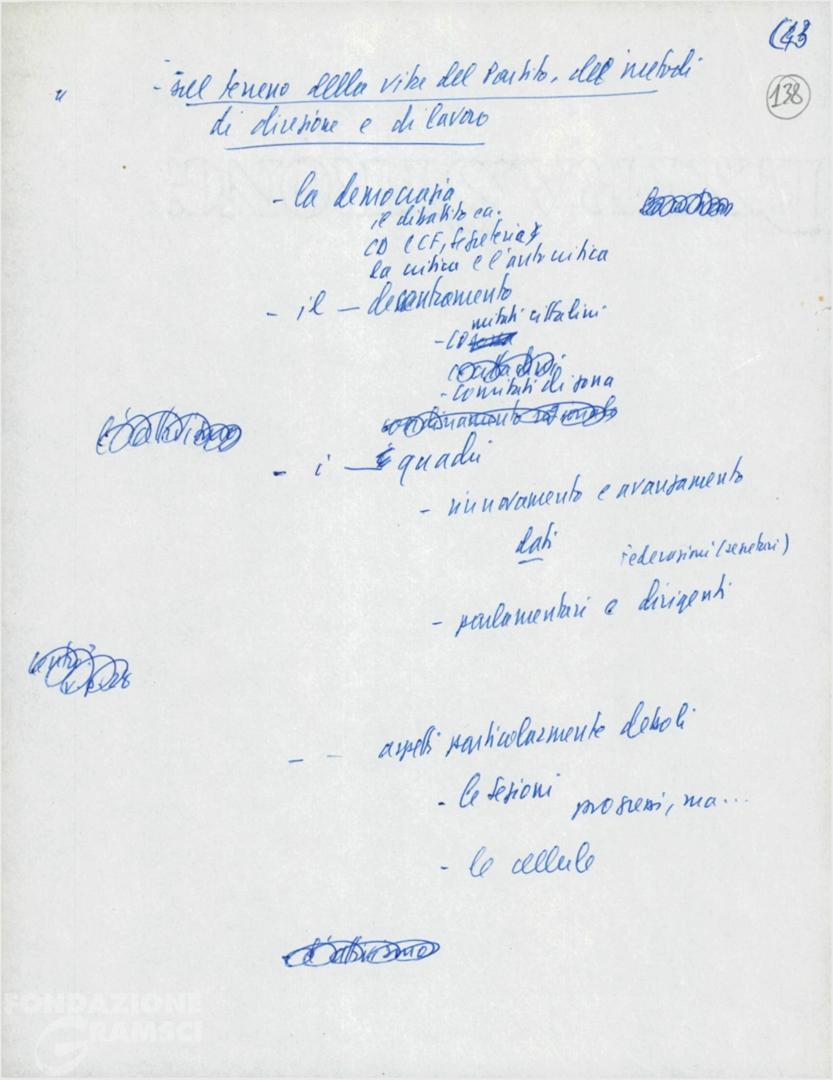 138
- sul terreno della vita del Partito, dei metodi
di direzione e di lavoro
- la democrazia
il dibattito
CD e CF, segreteria
la critica e l'autocritica
- il — decentramento
mitati cittadini
- Co
- Comitati di zona
l'attivismo
- i — quadri
- rinnovamento e avanzamento
dati
Federazioni (segretari)
- parlamentari e dirigenti
- - aspetti particolarmente deboli
- le sezioni
progressi, ma...
- le cellule
l'attivismo
FONDAZIONE
GRAMSCI